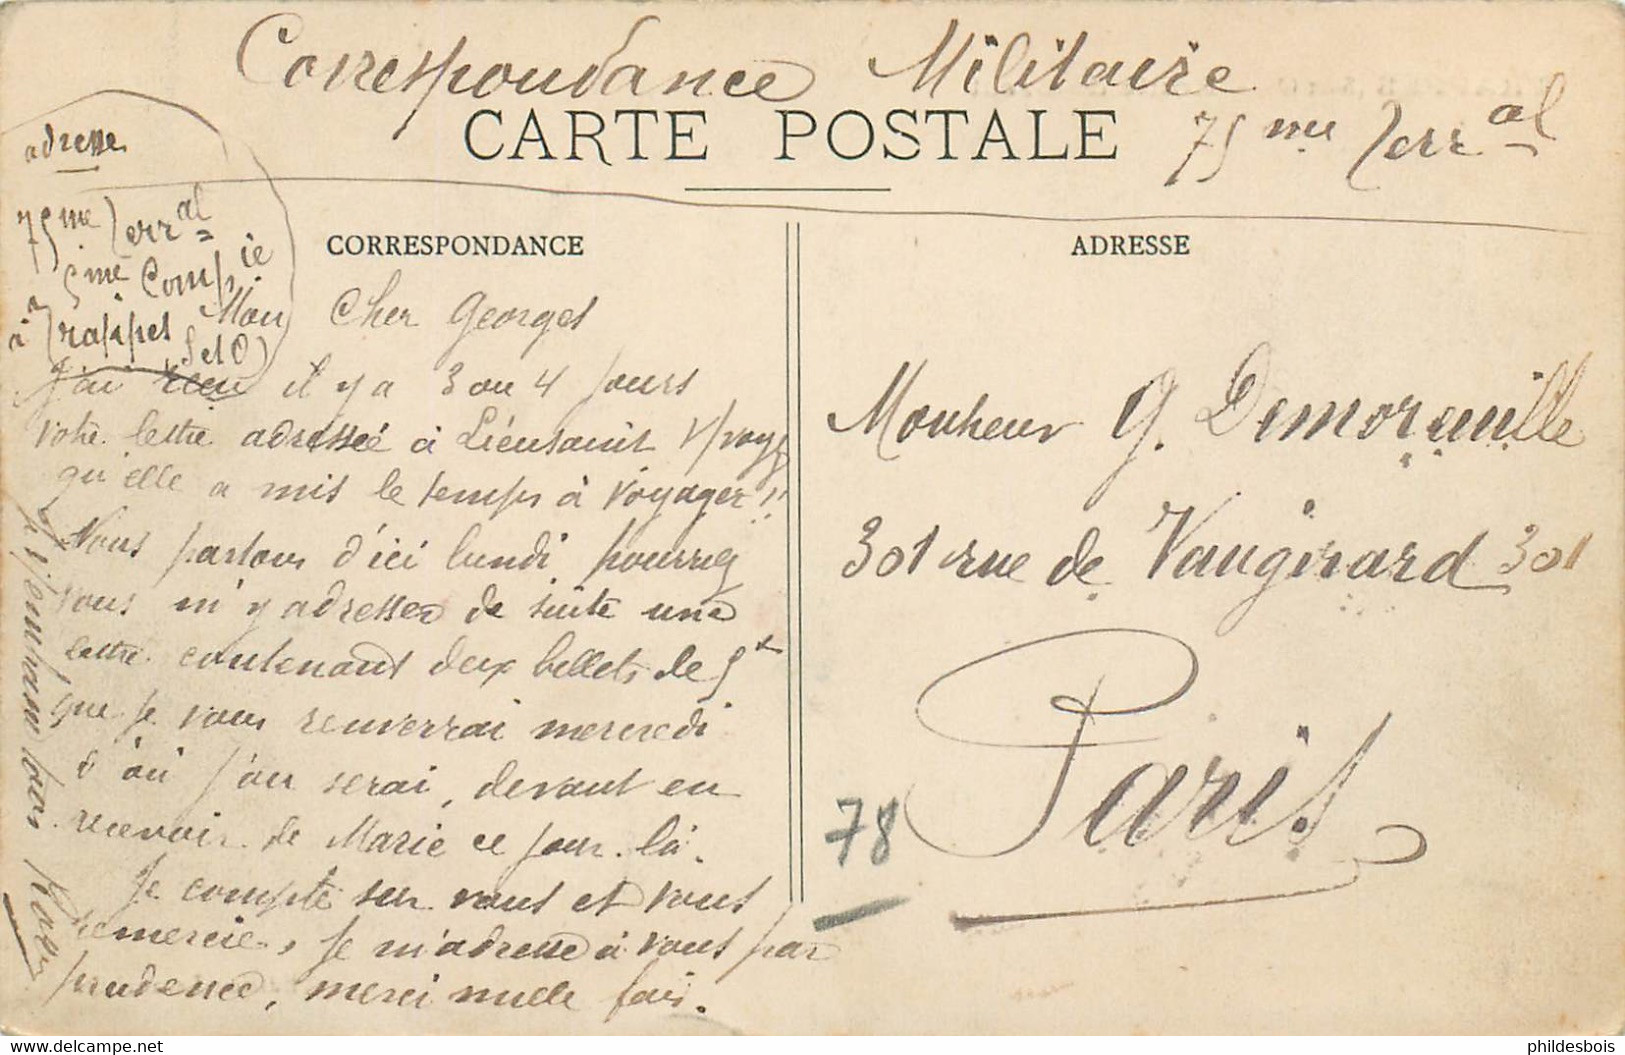 Correspondance Militaire
CARTE POSTALE
75 me Terr al
adresse
75 me Terr al
5 me Comp ie
à Trappes
S et O
CORRESPONDANCE
ADRESSE
Mon Cher Georges
J'ai reçu il y a 3 ou 4 jours
votre lettre adressée à Lieusaint
qu'elle a mis le temps à voyager !!
Nous partons d'ici lundi pourriez
vous m'y adresser de suite une
lettre contenant deux billets de 5 f
que je vous renverrai mercredi
d'où j'en serai, devant en
recevoir de Marie ce jour là.
Je compte sur vous et vous
remercie, je m'adresse à vous par
prudence, merci mille fois.
Monsieur G. Demoreuille
301 rue de Vaugirard 301
Paris
78
phildesbois